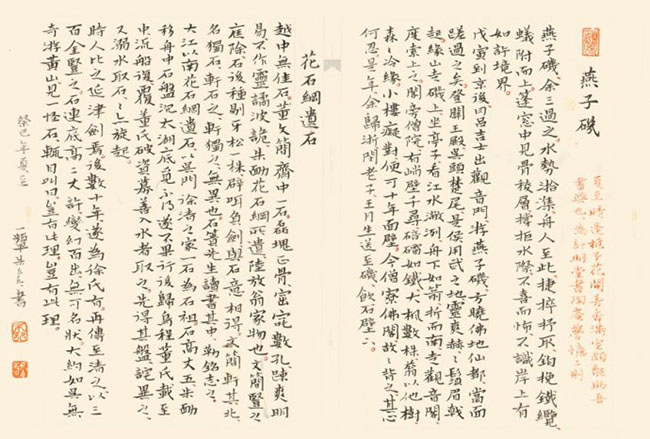 燕子磯
夏至時逢梔子花開香滿室頗能助吾
燕子磯余三過之水勢湁潗舟人至此捷捽抒取鈎挽鐵纜
蟻附而上蓬窓中見骨稜層撐拒水際不喜而怖不識岸上有
如許境界
戊寅到京後同呂吉士出觀音門游燕子磯方曉佛地仙都當面
蹉過之矣登關王殿吳頭楚尾是侯用武之地靈爽赫々鬚眉戟
起緣山走磯上坐亭子看江水潎洌舟下如箭折而南走觀音閣
度索上之閣旁僧院有峭壁千尋碚礌如鐵大楓數株蓊以他樹
森々冷綠小樓癡對便可十年面壁今僧寮佛閣故々背之其心
何忍是年余歸浙閔老子王月生送至磯飲石壁下
花石綱遺石
越中無佳石董文簡齋中一石磊塊正骨窋窊數孔疎爽明
易不作靈譎波詭朱勔花石綱所遺陸放翁家物也文簡豎之
庭除石後種剔牙松一株辟咡負劍與石意相得文簡軒其北
名獨石軒石之軒獨之無異也石簣先生讀書其中勒銘志之
大江以南花石綱遺石以吳門徐清之家一石為石祖石高丈五朱勔
移舟中石盤沉太湖底覓不得遂不果行後歸烏程董氏載至
中流船復覆董氏破資募善入水者取之先得其盤詫異之
又溺水取石石亦旋起
時人比之延津劍焉後數十年遂為徐氏有再傳至清之以三
百金豎之石連底高二丈許變幻百出無可名狀大約如吳無
奇游黃山見一怪石輒瞋目叫曰豈有此理豈有此理
癸巳年夏至